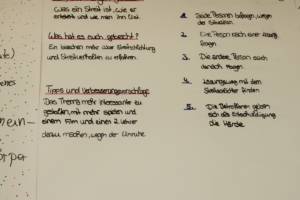 Was ein Streit ist, wie er
entsteht und wie man ihn löst.
Was hat es euch gebracht?
Ein bisschen mehr über Streitschlichtung
und Streitverhalten zu erfahren.
Tipps und Verbesserungsvorschläge
Das Thema mehr interessanter zu
gestalten, mit mehr spielen und
einem Film und einen 2. Lehrer
dazu machen, wegen der Unruhe
1. Beide Personen befragen, wegen
der Situation
2. Die Person nach einer Lösung
fragen
3. Die andere Person auch
danach fragen
4. Lösungsweg mit dem
Streitschlichter finden
5. Die Betroffenen geben
sich als Entschuldigung
die Hände